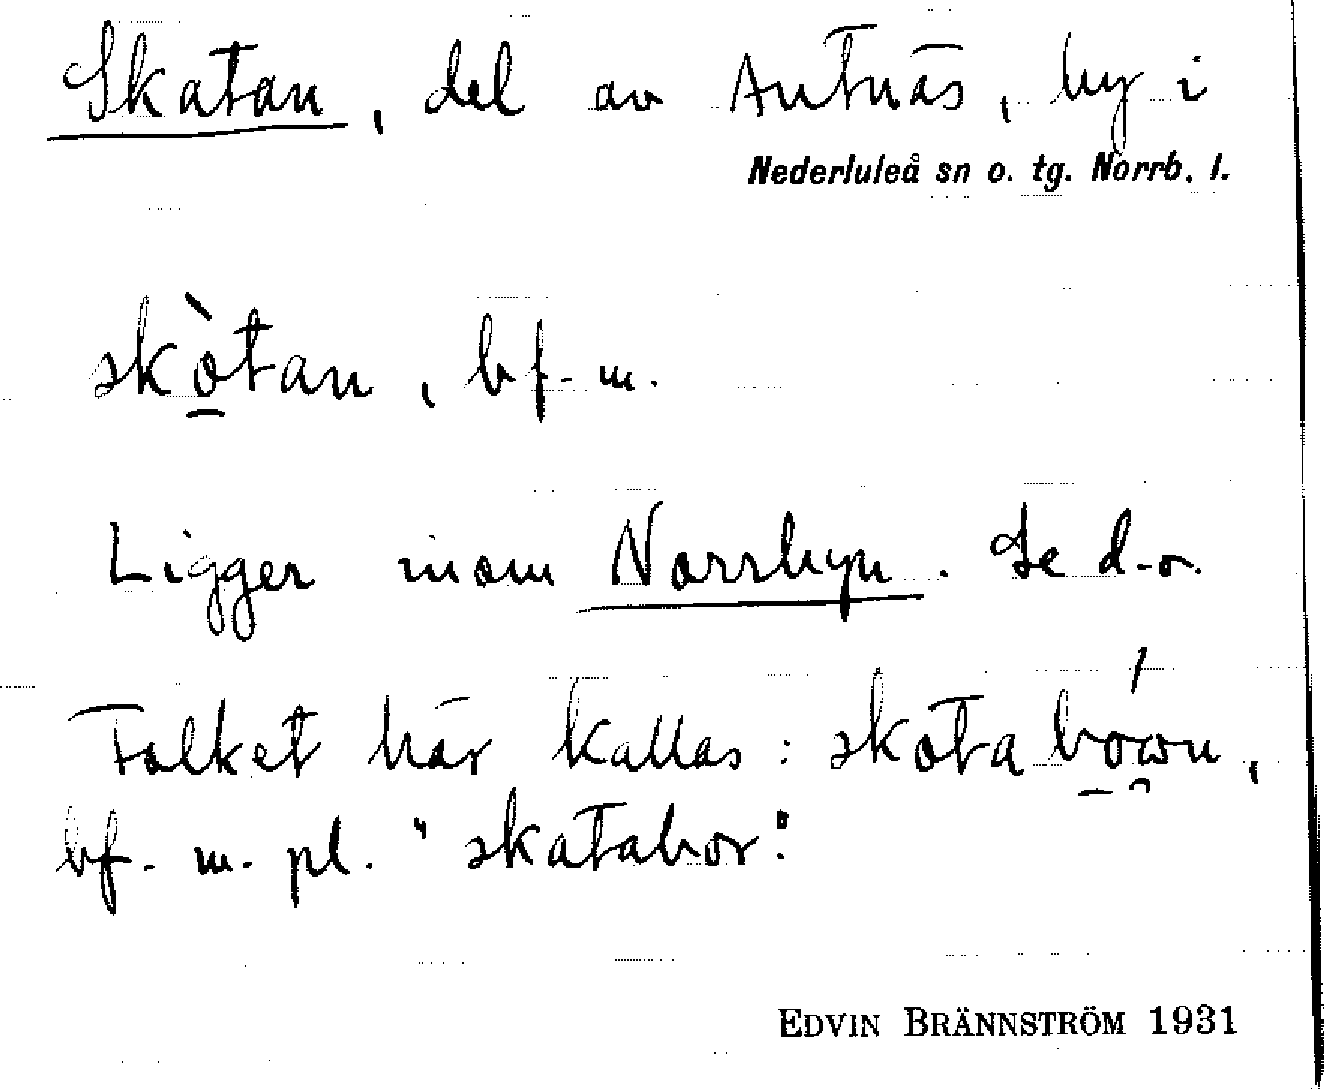 Skatan, del av Antnäs, by i
Nederluleå sn o. tg. Norrb. l.
skò̠tan, bf. m.
Ligger inom Norrbyn. Se d.o.
Folket här kallas: skota bó̠wn,
bf. m. pl. "skatabor".
EDVIN BRÄNNSTRÖM 1931